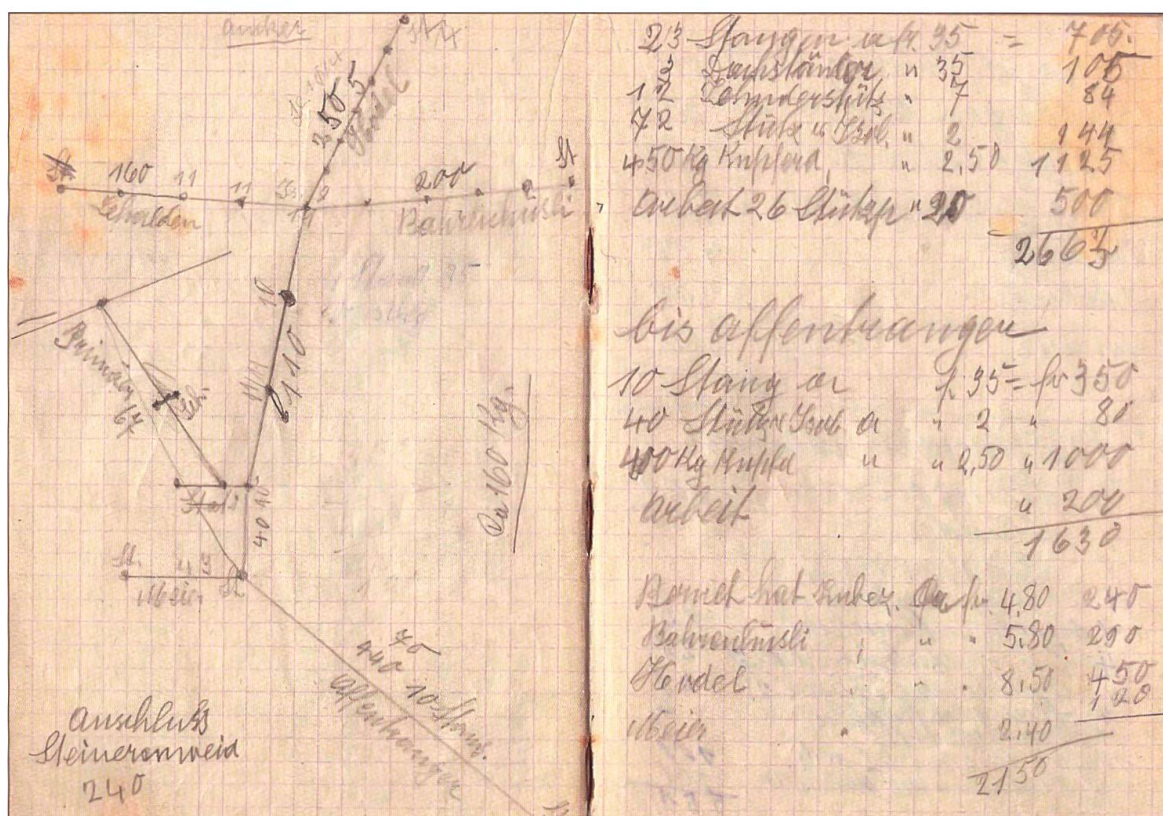 anker
St
250 5
Hödel
St
160
11
11
200
2
St
Bahrenhüsli
10
110
Ca 160 Kg.
67
40
St.
Meier
St
70
440 10 Stang.
Affentranger
Anschluss
Steinerenweid
240
23 Stangen a fr. 35 = 705.
3 Dachständer " 35 105
12 " 7 84
72 Stütz u Isol. " 2 144
450 Kg Kupferd, " 2,50 1125
Arbeit 26 Stützp " 20 500
2663
bis Affentranger
10 Stang a f. 35 = fr 350
40 Stütz u Isol a " 2 " 80
400 Kg Kupfd " " 2,50 " 1000
Arbeit " 200
1630
hat fr 4,80 240
Bahrenhüsli " " 5,80 290
Hödel " " 8,50 450
120
Meier " 2,40
2150